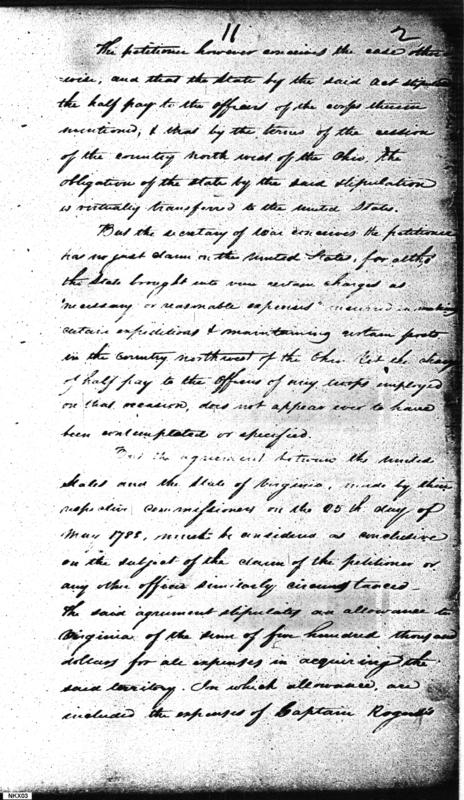 11 2
The petitioner however conceives the case other
wise, and that the State by the said act
the half pay to the officers of the corps therein
mentioned, & that by the terms of the cession
of the country north west of the Ohio, the
obligation of the state by the said stipulation
is virtually transferred to the United States.
But the secretary of war conceives the petitioner
has no just claim on the United States, for altho
the State brought into view certain charges as
"necessary or reasonable expenses" incurred in making
certain expeditions & maintaining certain posts
in the country northwest of the Ohio Yet the charge
of half pay to the Officers of any troops employed
on that occasion, does not appear ever to have
been contemplated or specified.
But the agreement between the United
States and the State of Virginia, made by their
respective commissioners on the 25th day of
May 1788, must be considered as conclusive
on the subject of the claim of the petitioner or
any other officer similarly
The said agrument stipulates an allowance to
Virginia of the sum of five hundred thousand
dollars for all expenses in acquiring the
said territory. In which allowance, are
included the expenses of Captain
NKX03